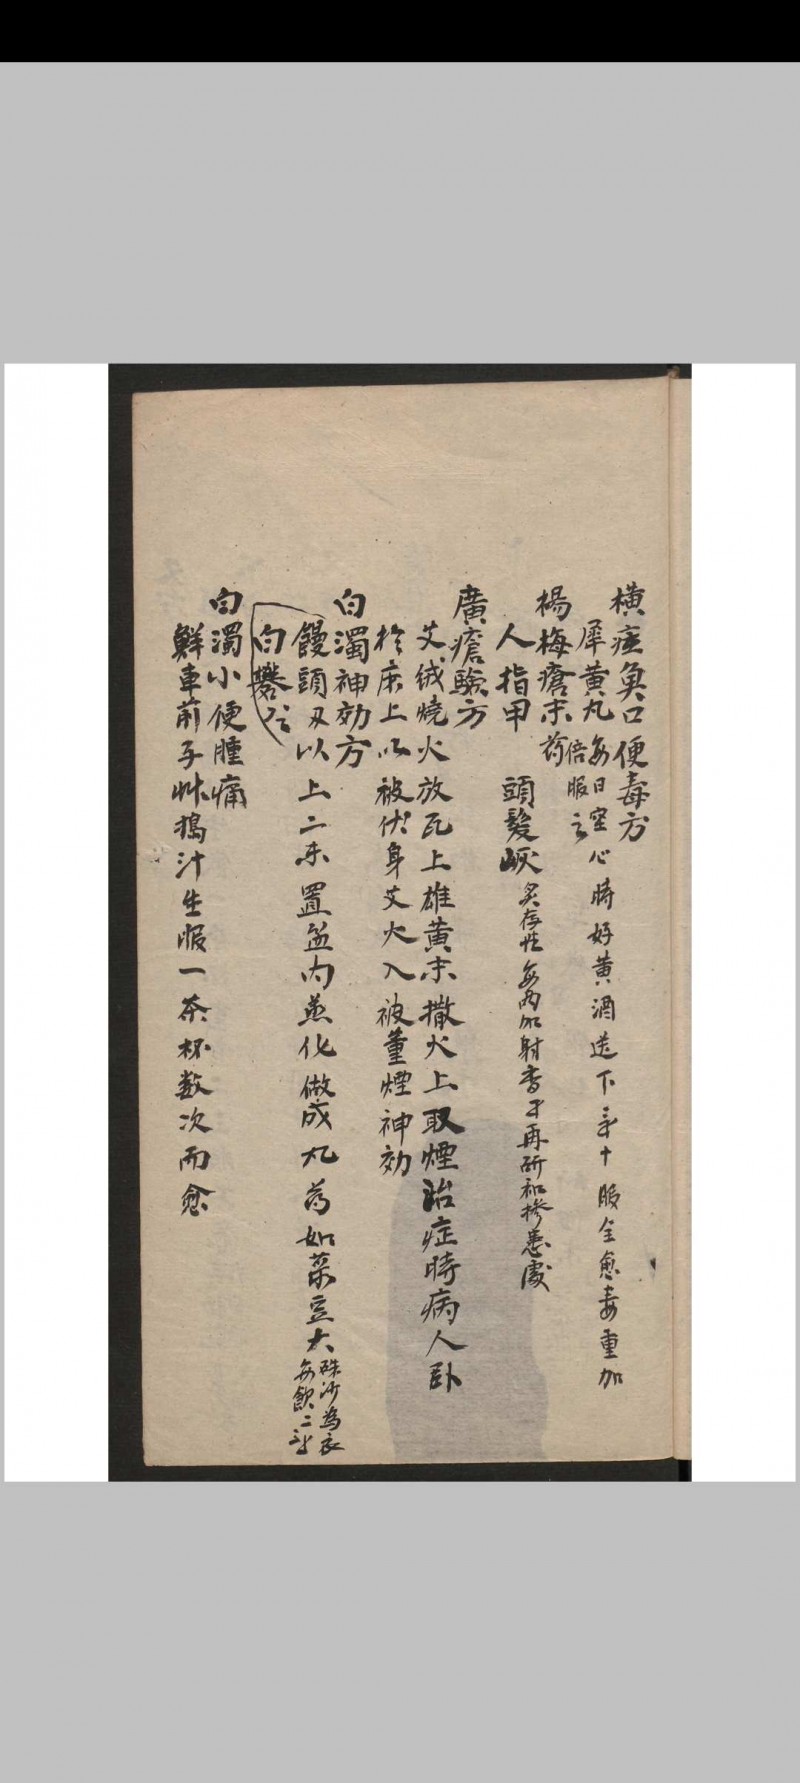 橫痃魚口便毒方
犀黃丸 每日空心時好黃酒送下 三十服全愈 毒重加倍服之
楊梅瘡末葯
人指甲 頭髮灰 炙存性 每兩加射香 再研和摻患處
廣瘡驗方
艾絨燒火放瓦上雄黃末撒火上取煙治症時病人卧
於床上以被伏身艾火入被董煙神効
白濁神効方
饅頭 刃以上二末置盆內蒸化做成丸為如菉豆大 硃沙為衣 每飲二
白礬
白濁小便腫痛
鮮車前子艸搗汁生服一茶杯數次而愈